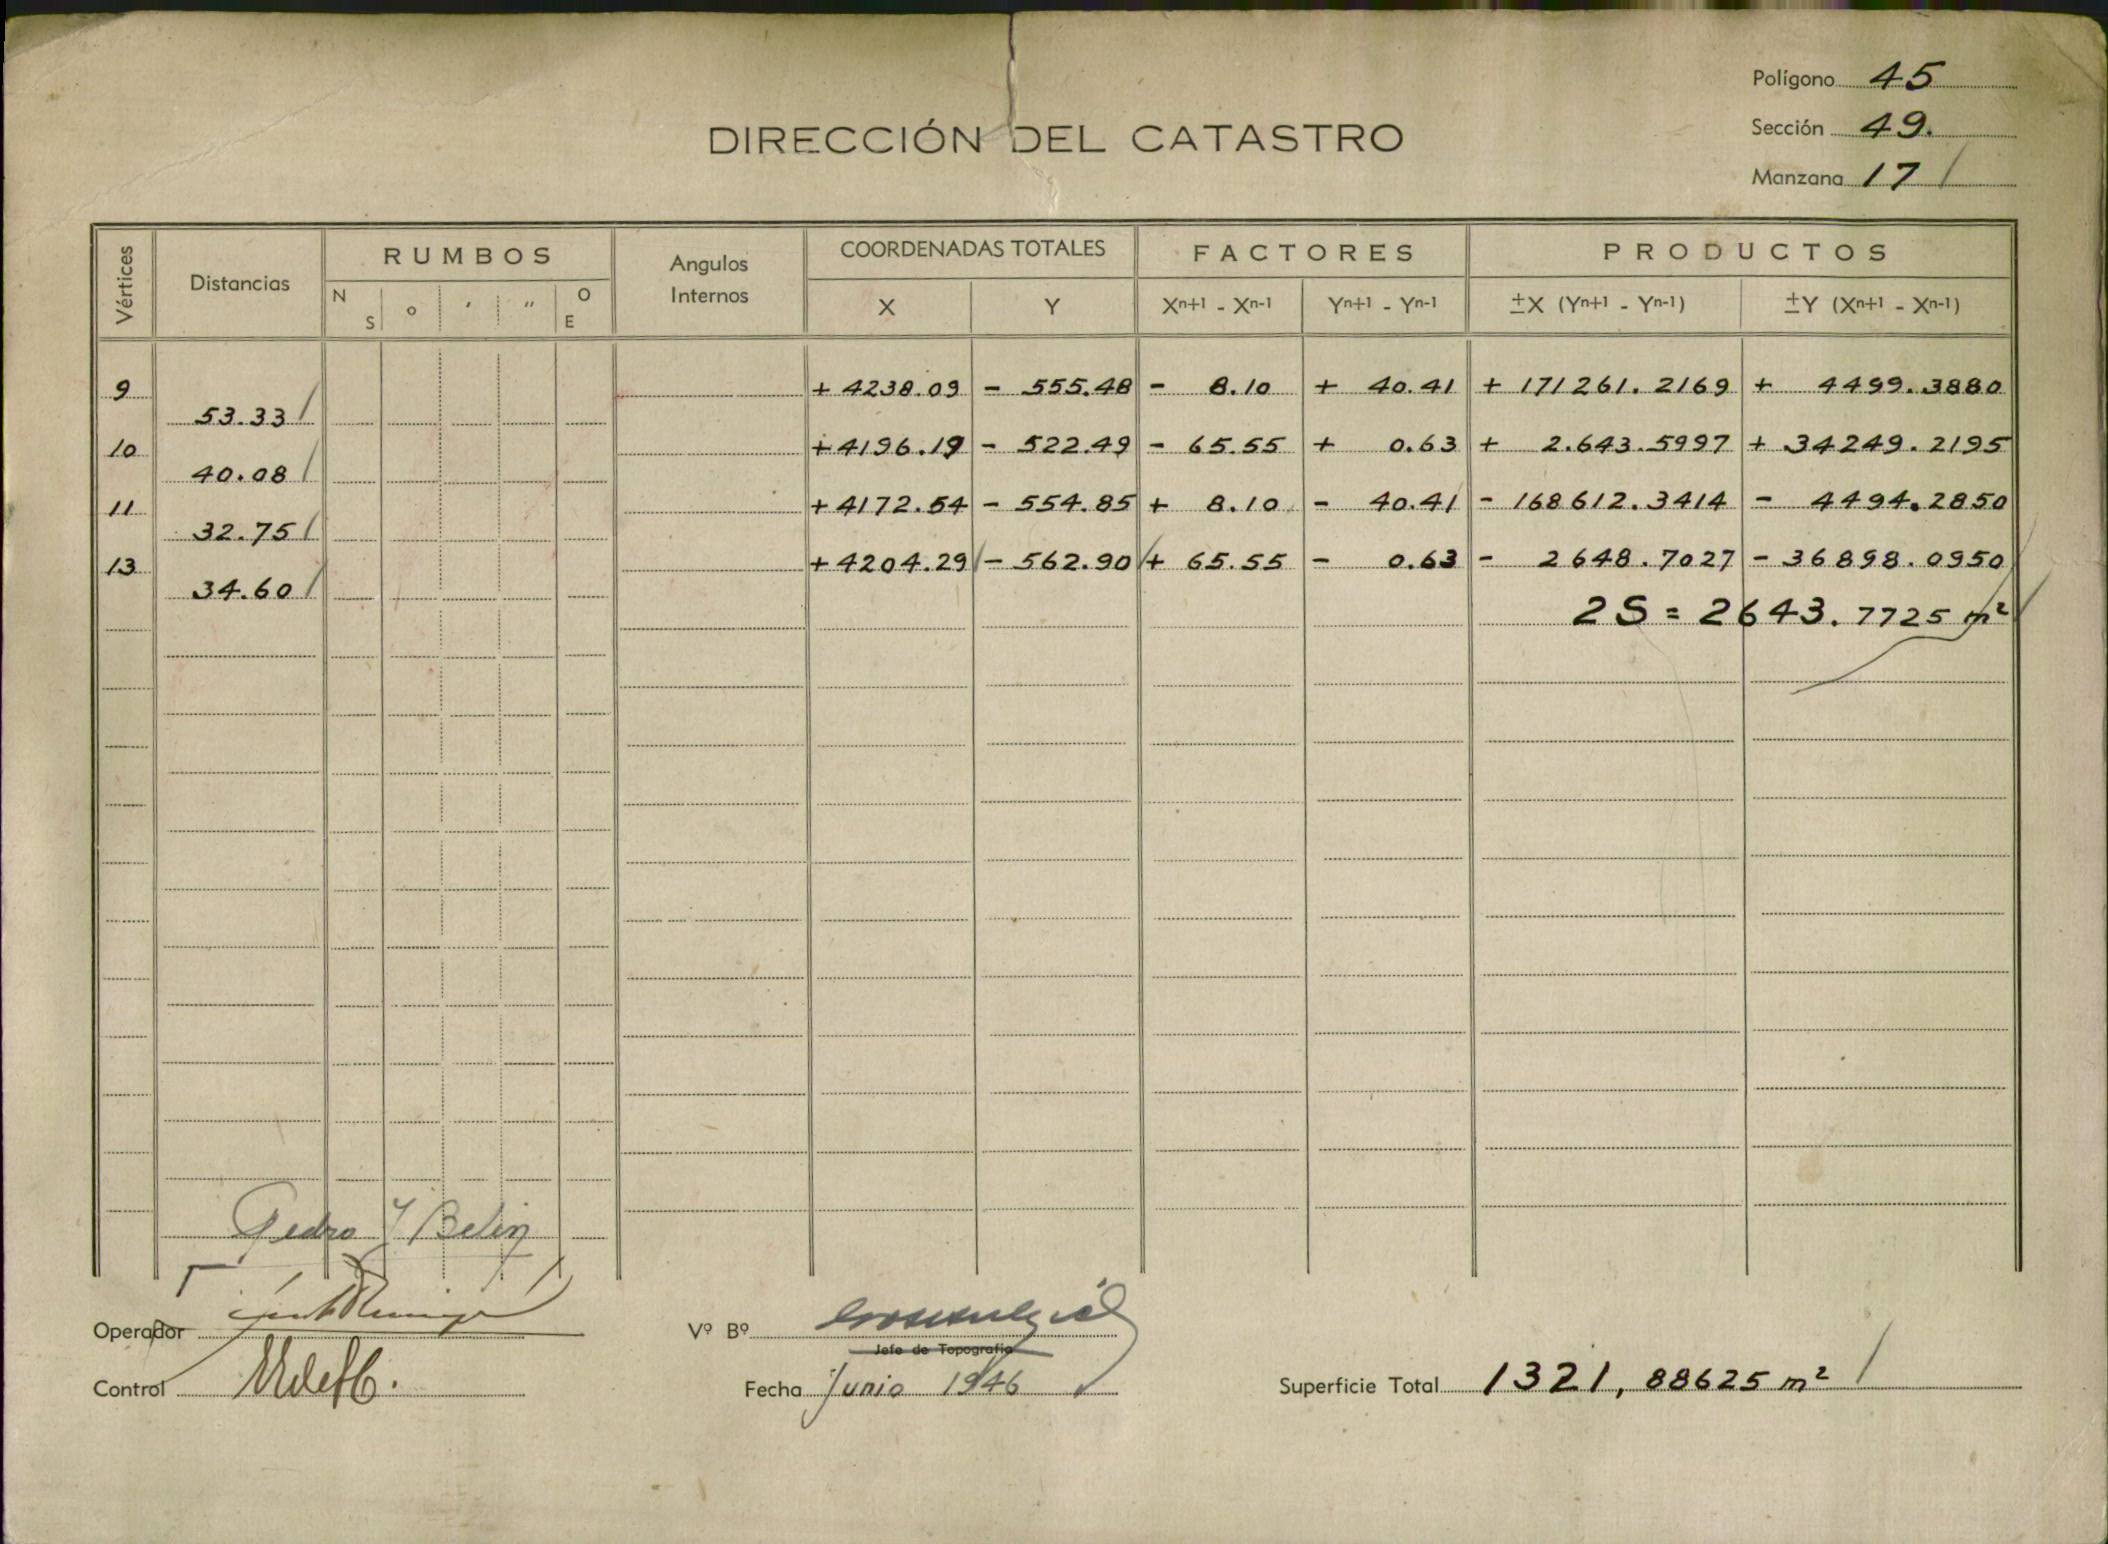 Polígono 45
Sección 49.
Manzana 17
DIRECCIÓN DEL CATASTRO
Vértices Distancias RUMBOS Angulos Internos COORDENADAS TOTALES FACTORES PRODUCTOS
N S o ′ ″ O E X Y Xn+1 - Xn-1 Yn+1 - Yn-1 ±X (Yn+1 - Yn-1) ±Y (Xn+1 - Xn-1)
9 + 4238.09 - 555.48 - 8.10 + 40.41 + 171261.2169 + 4499.3880
53.33
10 + 4196.19 - 522.49 - 65.55 + 0.63 + 2.643.5997 + 34249.2195
40.08
11 + 4172.54 - 554.85 + 8.10 - 40.41 - 168612.3414 - 4494.2850
32.75
13 + 4204.29 - 562.90 + 65.55 - 0.63 - 2648.7027 - 36898.0950
34.60
2S = 2643.7725 m²
Pedro Y Belin
Operador
Vº Bº
Jefe de Topografia
Control
Fecha Junio 1946
Superficie Total 1321,88625 m²